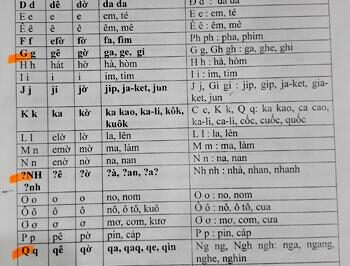 D d dê dờ da da D d : da da
E e e e em, té E e : em, té
Ê ê ê ê êm, mê Ê ê : êm, mê
F f efờ fờ fa, fim Ph ph : pha, phim
G g gê gờ ga, ge, gi G g, Gh gh : ga, ghe, ghi
H h hát hờ hà, hòm H h : hà, hòm
I i i i im, tim I i : im, tim
J j ji jờ ji jíp, ja-ket, jun J j, Gi gi : jip, gip, ja-ket, gia-
ket, jun
K k ka kờ ka kao, ka-li, kôk, C c, K k, Q q: ka kao, ca cao,
kuôk ka-li, ca-li, cốc, cuốc, quốc
L l elờ lờ la, lên L l : la, lên
M m emờ mờ ma, làm M m : ma, làm
N n enờ nờ na, nan N n : na, nan
?NH ?ê ?ờ ?à, ?an, ?a? Nh nh : nhà, nhan, nhanh
?nh
O o o o no, nom O o : no, nom
Ô ô ô ô nô, ô tô, kuô Ô ô : nô, ô tô, cua
Ơ ơ ơ ơ mơ, cơm O o : mơ, cơm, cưa
P p pê pờ pin, cáp P p : pin, cáp
Q q qê qờ qa, qaq, qe, qin Ng ng, Ngh ngh: nga, ngang,
nghe, nghin